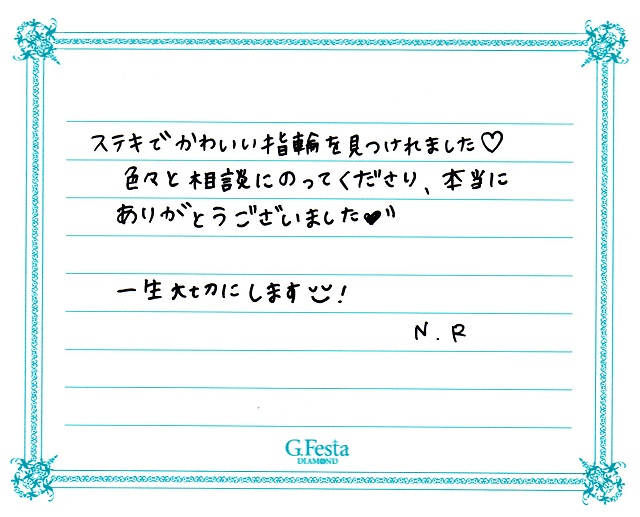 ステキでかわいい指輪を見つけれました♡
色々と相談にのってくださり、本当に
ありがとうございました♥
一生大切にします!
N.R
G.Festa
DIAMOND